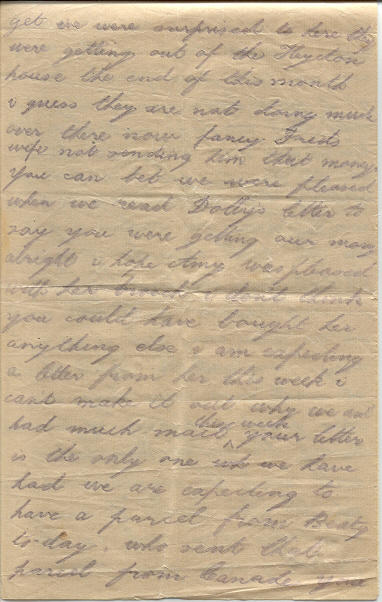 get we were surprised to here they
were getting out of the Hayston
house the end of this month
i guess they are not doing much
over there now fancy Freds
wife not sending him that money
you can bet we were pleased
when we read Dolby's letter to
say you were getting our money
alright i hope Amy was pleased
with her broach i dont think
you could have bought her
anything else i am expecting
a letter from her this week i
cant make it out why we ant
had much mail this week your letter
is the only one we have
had we are expecting to
have a parcel from Beaty
to-day. who sent that
parcel from Canada